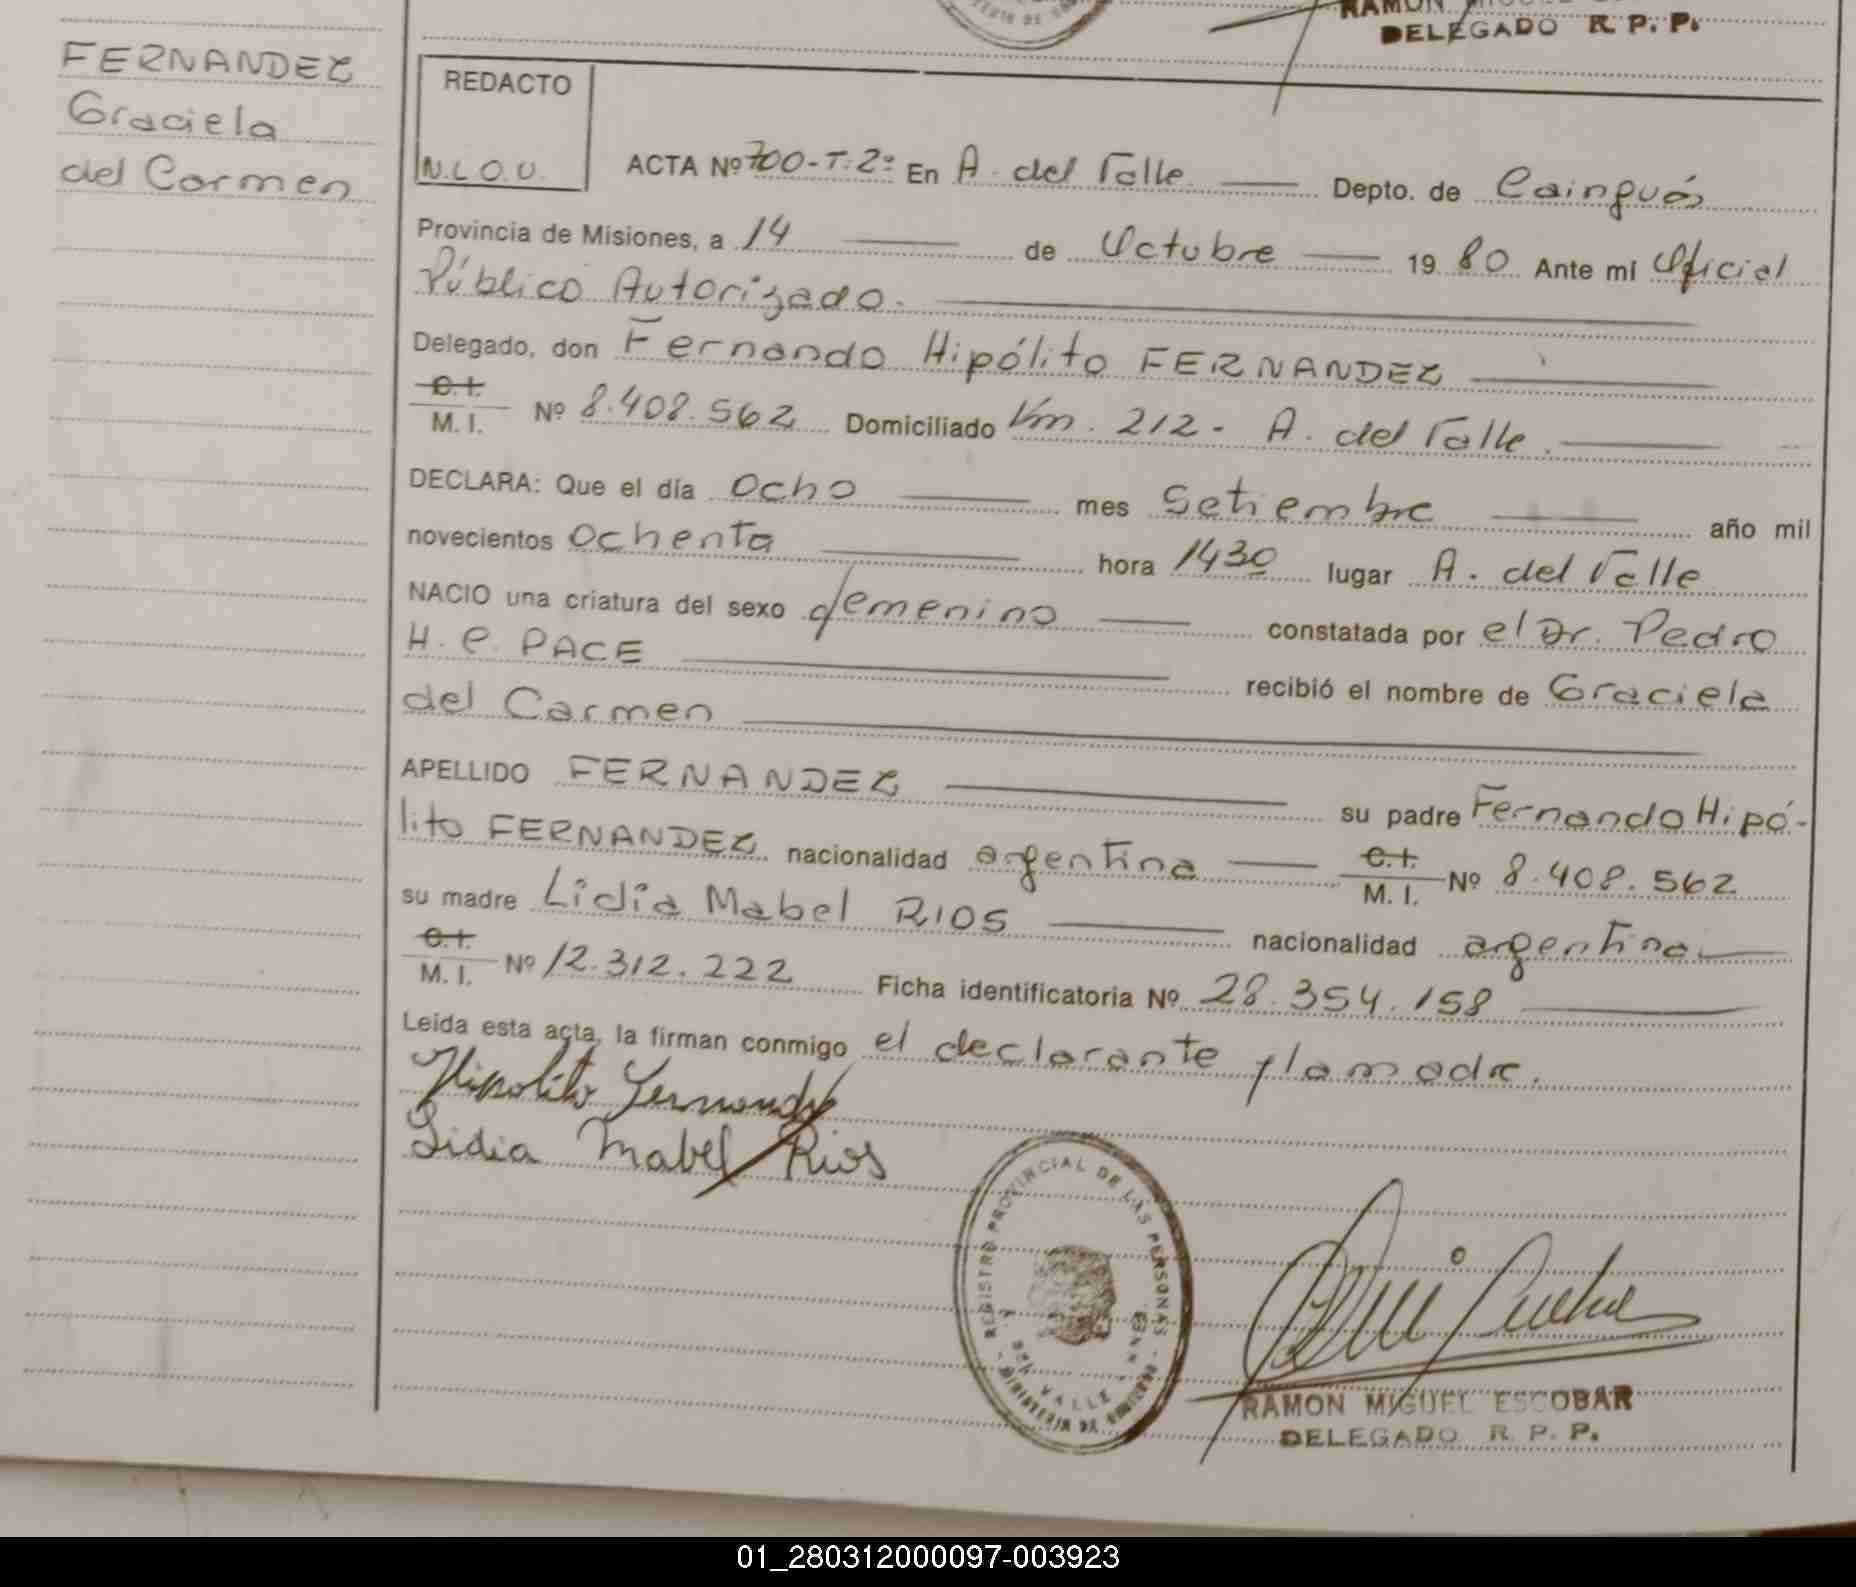 RAMON MIGUEL
DELEGADO R. P. P.
FERNANDEZ
Graciela
del Carmen
REDACTO
N.L.O.U.
ACTA Nº 700-T:2º En A. del Valle. Depto. de Cainguás
Provincia de Misiones, a 14 de Octubre 19 80 Ante mi Oficial
Público Autorizado.
Delegado, don Fernando Hipólito FERNANDEZ
C.I.
M. I. Nº 8.408.562 Domiciliado Km. 212- A. del Valle.
DECLARA: Que el día ocho mes Setiembre año mil
novecientos ochenta hora 1430 lugar A. del Valle
NACIO una criatura del sexo femenino constatada por el Dr. Pedro
H. C. PACE recibió el nombre de Graciela
del Carmen
APELLIDO FERNANDEZ su padre Fernando Hipó-
lito FERNANDEZ nacionalidad argentina C.I. M. I. Nº 8.408.562
su madre Lidia Mabel RIOS nacionalidad argentina
C.I.
M. I. Nº 12.312.222 Ficha identificatoria Nº 28.354.158
Leída esta acta, la firman conmigo el declarante y la madre.
Hipolito Fernandez
Lidia Mabel Rios
REGISTRO PROVINCIAL DE LAS PERSONAS
A. DEL VALLE
MINISTERIO DE GOBIERNO
RAMON MIGUEL ESCOBAR
DELEGADO R. P. P.
01_280312000097-003923